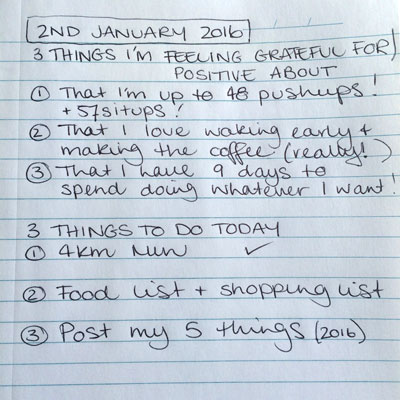 2ND JANUARY 2016
3 THINGS I'M FEELING GRATEFUL FOR/
POSITIVE ABOUT
① That I'm up to 48 pushups!
+ 57 situps!
② That I love waking early +
making the coffee (really!)
③ That I have 9 days to
spend doing whatever I want!
3 THINGS TO DO TODAY
① 4km run ✓
② Food list + shopping list
③ Post my 5 things (2016)